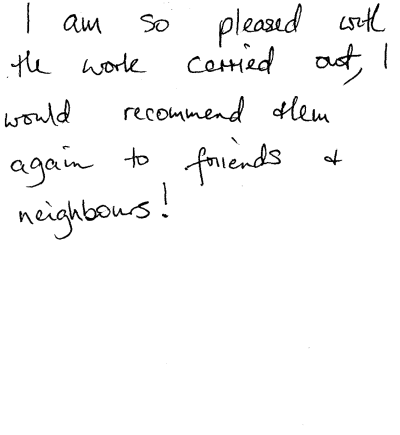 I am so pleased with
the work carried out, I
would recommend them
again to friends &
neighbours!